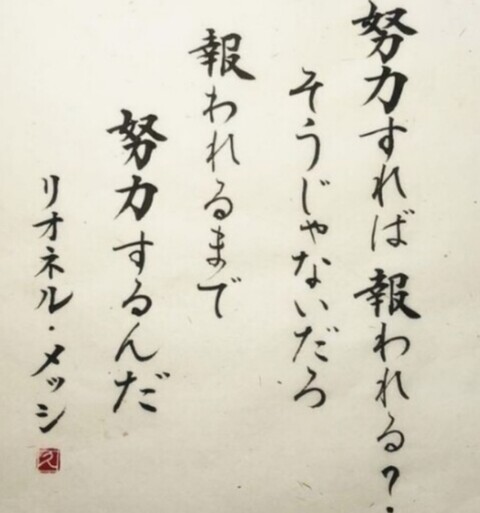 努力すれば報われる?
そうじゃないだろ
報われるまで
努力するんだ
リオネル・メッシ